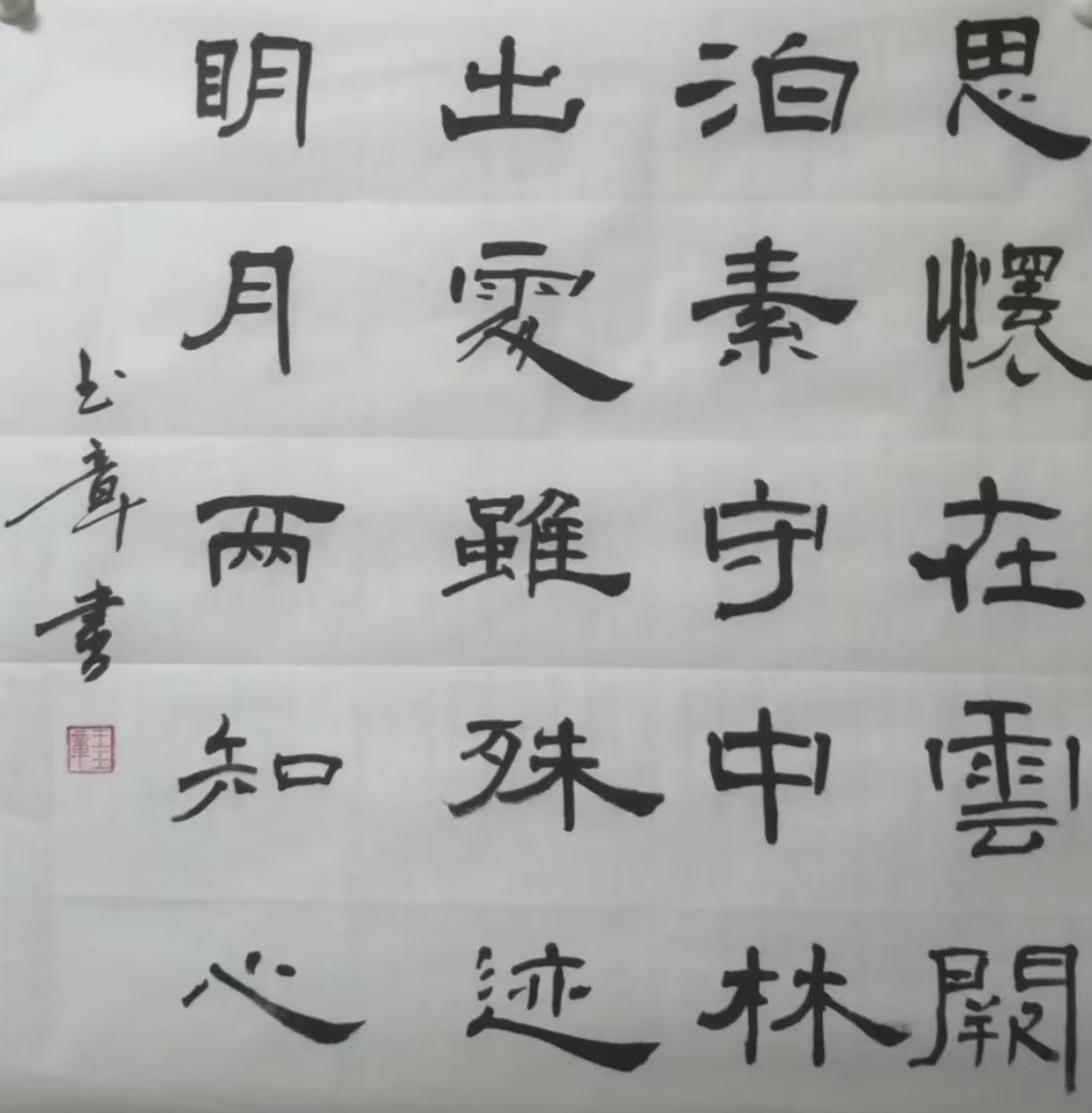 思懷在雲闕
泊素守中林
出處雖殊迹
明月两知心
玉章書
王玉章